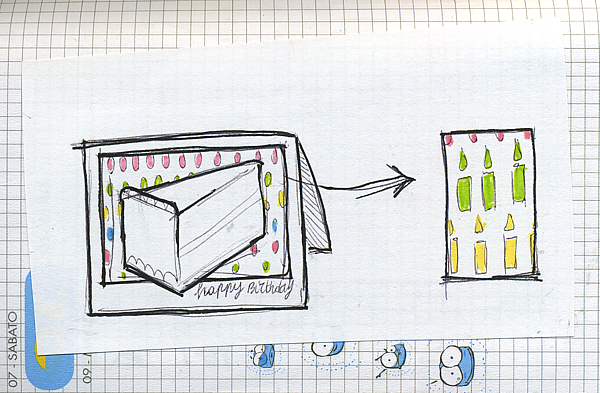 happy Birthday
07 - SABATO
09 -